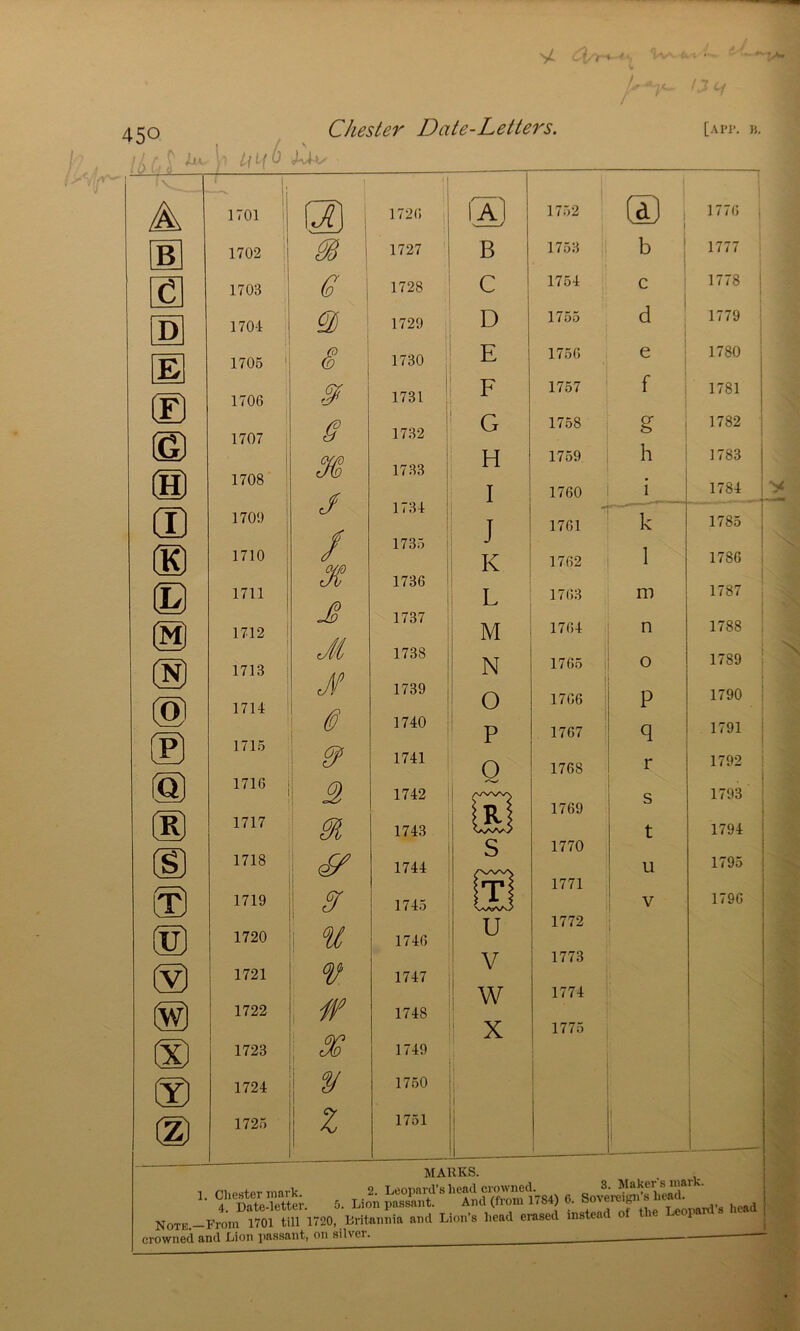 450 Chester Date-Letters. [APP. B.
A 1701 A 1726 A 1752 a 1776
B 1702 B 1727 B 1753 b 1777
C 1703 C 1728 C 1754 c 1778
D 1704 D 1729 D 1755 d 1779
E 1705 E 1730 E 1756 e 1780
F 1706 F 1731 F 1757 f 1781
G 1707 G 1732 G 1758 g 1782
H 1708 H 1733 H 1759 h 1783
I 1709 I 1734 I 1760 i 1784
K 1710 J 1735 J 1761 k 1785
L 1711 K 1736 K 1762 l 1786
M 1712 L 1737 L 1763 m 1787
N 1713 M 1738 M 1764 n 1788
O 1714 N 1739 N 1765 o 1789
P 1715 O 1740 O 1766 p 1790
Q 1716 P 1741 P 1767 q 1791
R 1717 Q 1742 Q 1768 r 1792
S 1718 R 1743 R 1769 s 1793
T 1719 S 1744 S 1770 t 1794
U 1720 T 1745 T 1771 u 1795
V 1721 U 1746 U 1772 v 1796
W 1722 V 1747 V 1773
X 1723 W 1748 W 1774
Y 1724 X 1749 X 1775
Z 1725 Y 1750
Z 1751
MARKS.
1. Chester mark. 2. Leopard's head crowned. 3. Maker's mark.
4. Date-letter. 5. Lion passant. And (from 1784) 6. Sovereign's head.
NOTE.—From 1701 till 1720, Britannia and Lion's head erased instead of the Leopard's head
crowned and Lion passant, on silver.